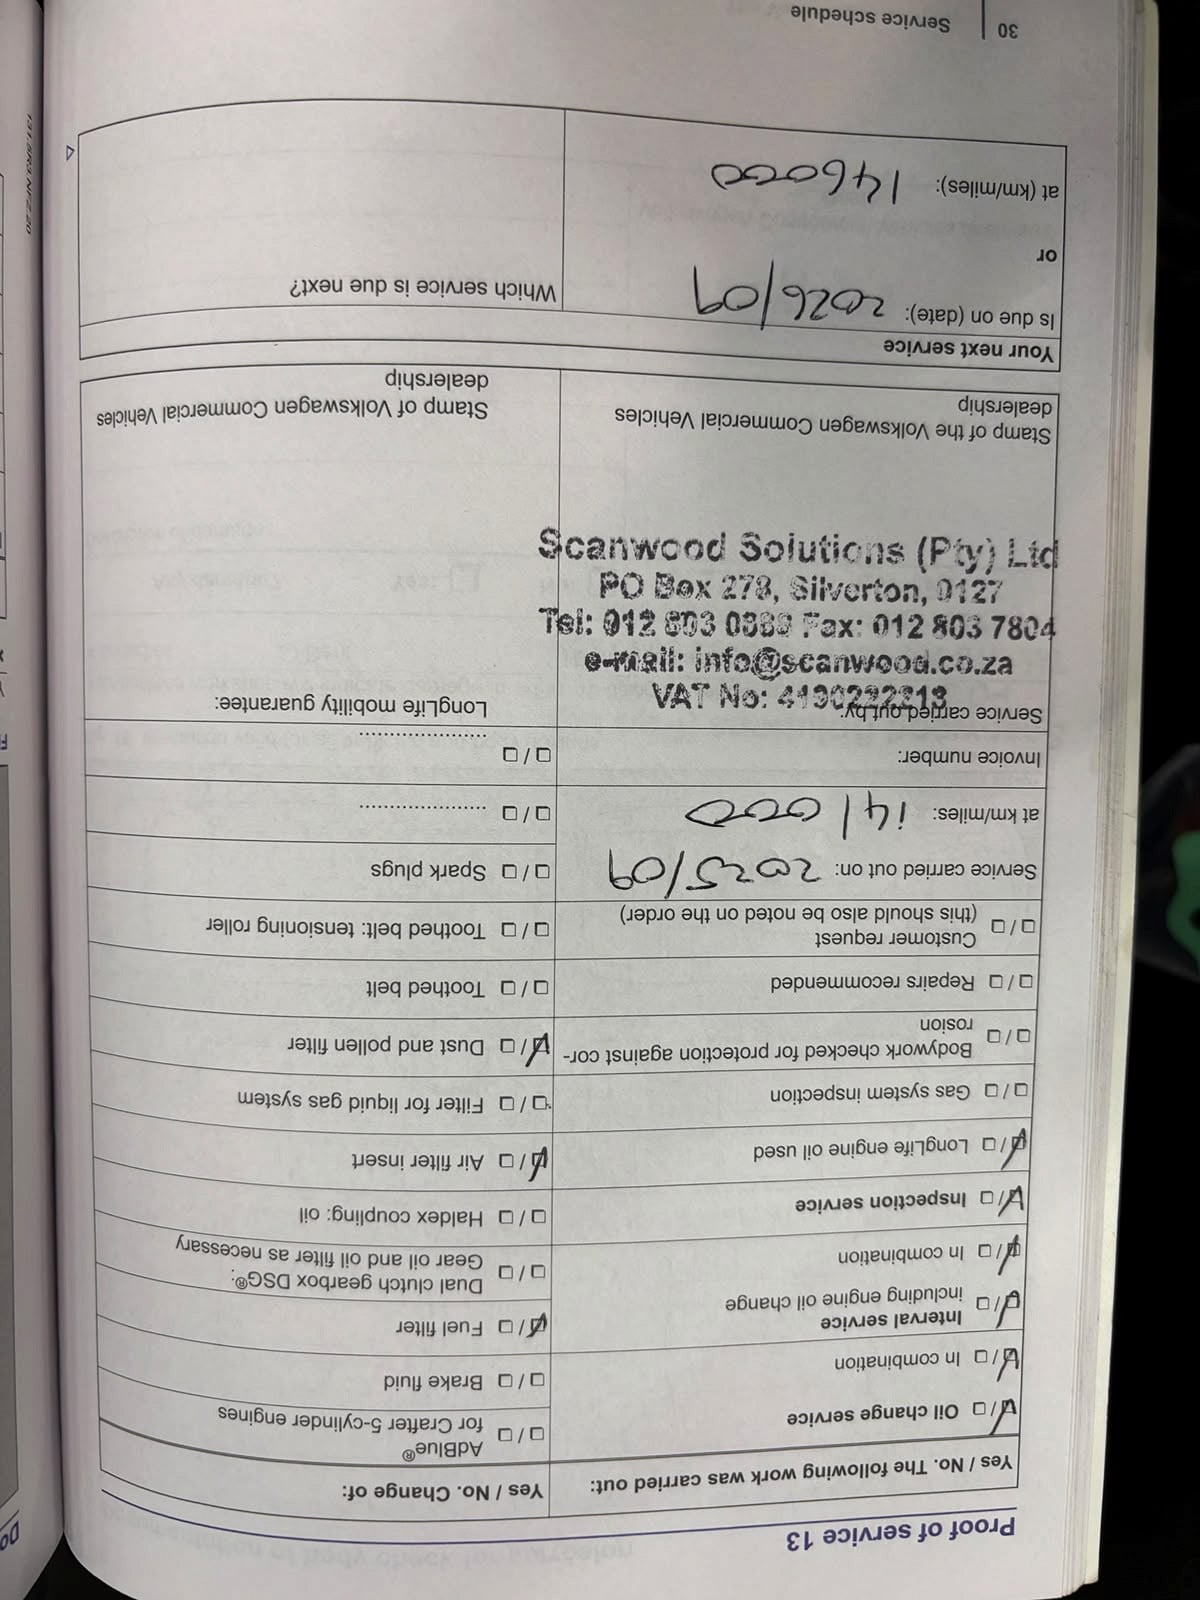 Proof of service 13
Yes / No. The following work was carried out:
Oil change service
In combination
Interval service
including engine oil change
In combination
Inspection service
LongLife engine oil used
Gas system inspection
Bodywork checked for protection against cor-
rosion
Repairs recommended
Customer request
(this should also be noted on the order)
Service carried out on: 2025/09
at km/miles: 141000
Invoice number:
Service carried out by:
Yes / No. Change of:
AdBlue®
for Crafter 5-cylinder engines
Brake fluid
Fuel filter
Dual clutch gearbox DSG®:
Gear oil and oil filter as necessary
Haldex coupling: oil
Air filter insert
Filter for liquid gas system
Dust and pollen filter
Toothed belt
Toothed belt: tensioning roller
Spark plugs
LongLife mobility guarantee:
Scanwood Solutions (Pty) Ltd
PO Box 278, Silverton, 0127
Tel: 012 803 Fax: 012 803 7804
e-mail: info@scanwood.co.za
VAT No:
Stamp of the Volkswagen Commercial Vehicles
dealership
Stamp of Volkswagen Commercial Vehicles
dealership
Your next service
Is due on (date): 2026/09
or
at (km/miles): 146000
Which service is due next?
30 | Service schedule
131.5R3.NFZ.20